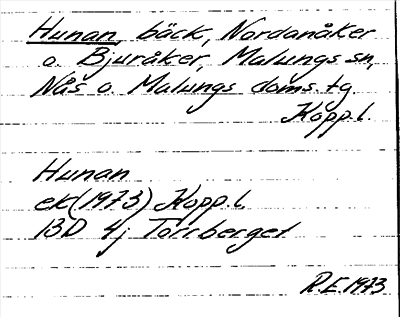 Hunan, bäck, Nordanåker
o. Bjuråker, Malungs sn,
Nås o. Malungs doms. tg.
Kopp. l.
Hunan
ek (1973) Kopp. l.
13D 4j Torrberget
R.E. 1973